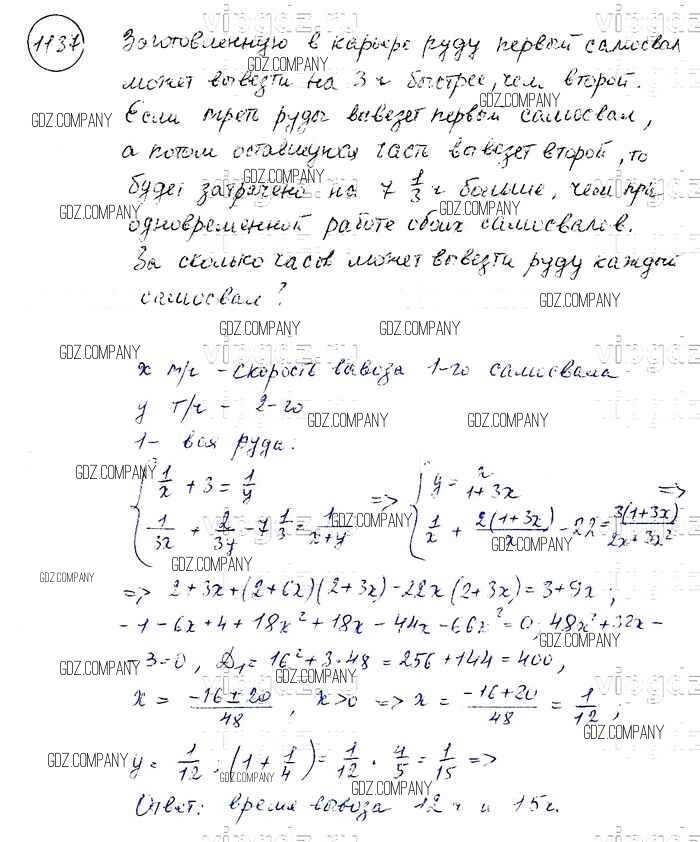 1137.
Заготовленную в карьере руду первый самосвал
может вывезти на 3 ч быстрее, чем второй.
Если треть руды вывезет первый самосвал,
а потом оставшуюся часть вывезет второй, то
будет затрачено на 7 1/3 ч больше, чем при
одновременной работе обоих самосвалов.
За сколько часов может вывезти руду каждый
самосвал?
x т/ч - скорость вывоза 1-го самосвала
y т/ч - 2-го
1 - вся руда.
{ 1/x + 3 = 1/y ; 1/3x + 2/3y - 7 1/3 = 1/(x+y) => { y = x/(1+3x) ; 1/x + 2(1+3x)/x - 22 = 3(1+3x)/(2x+3x²) =>
=> 2+3x+(2+6x)(2+3x)-22x(2+3x)=3+9x;
-1-6x+4+18x²+18x-44x-66x²=0; 48x²+32x-
-3=0, D₁=16²+3·48=256+144=400,
x = (-16±20)/48, x>0 => x = (-16+20)/48 = 1/12;
y = 1/12 : (1+1/4) = 1/12 · 4/5 = 1/15 =>
Ответ: время вывоза 12 ч и 15 ч.
GDZ.COMPANY
vipgdz.ru